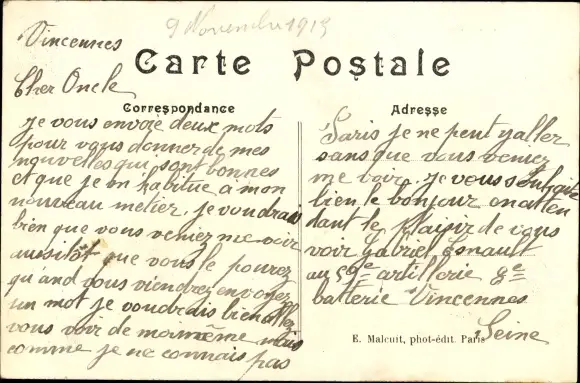 9 Novembre 1913
Vincennes
Carte Postale
Cher Oncle
Correspondance
je vous envoie deux mots
pour vous donner de mes
nouvelles qui sont bonnes
et que je on habitue à mon
nouveau metier. je voudrais
bien que vous veniez me voir
aussitôt que vous le pourez
qu'and vous viendrez envoyez
un mot je voudrais bien aller
vous voir de moimême mais
comme je ne connais pas
Adresse
Paris je ne peut y aller
sans que vous veniez
me voir. je vous souhaite
bien le bonjour en atten
dant le plaisir de vous
voir Gabriel Esnault
au 59e artillerie 9e
batterie Vincennes
Seine
E. Malcuit, phot-édit. Paris